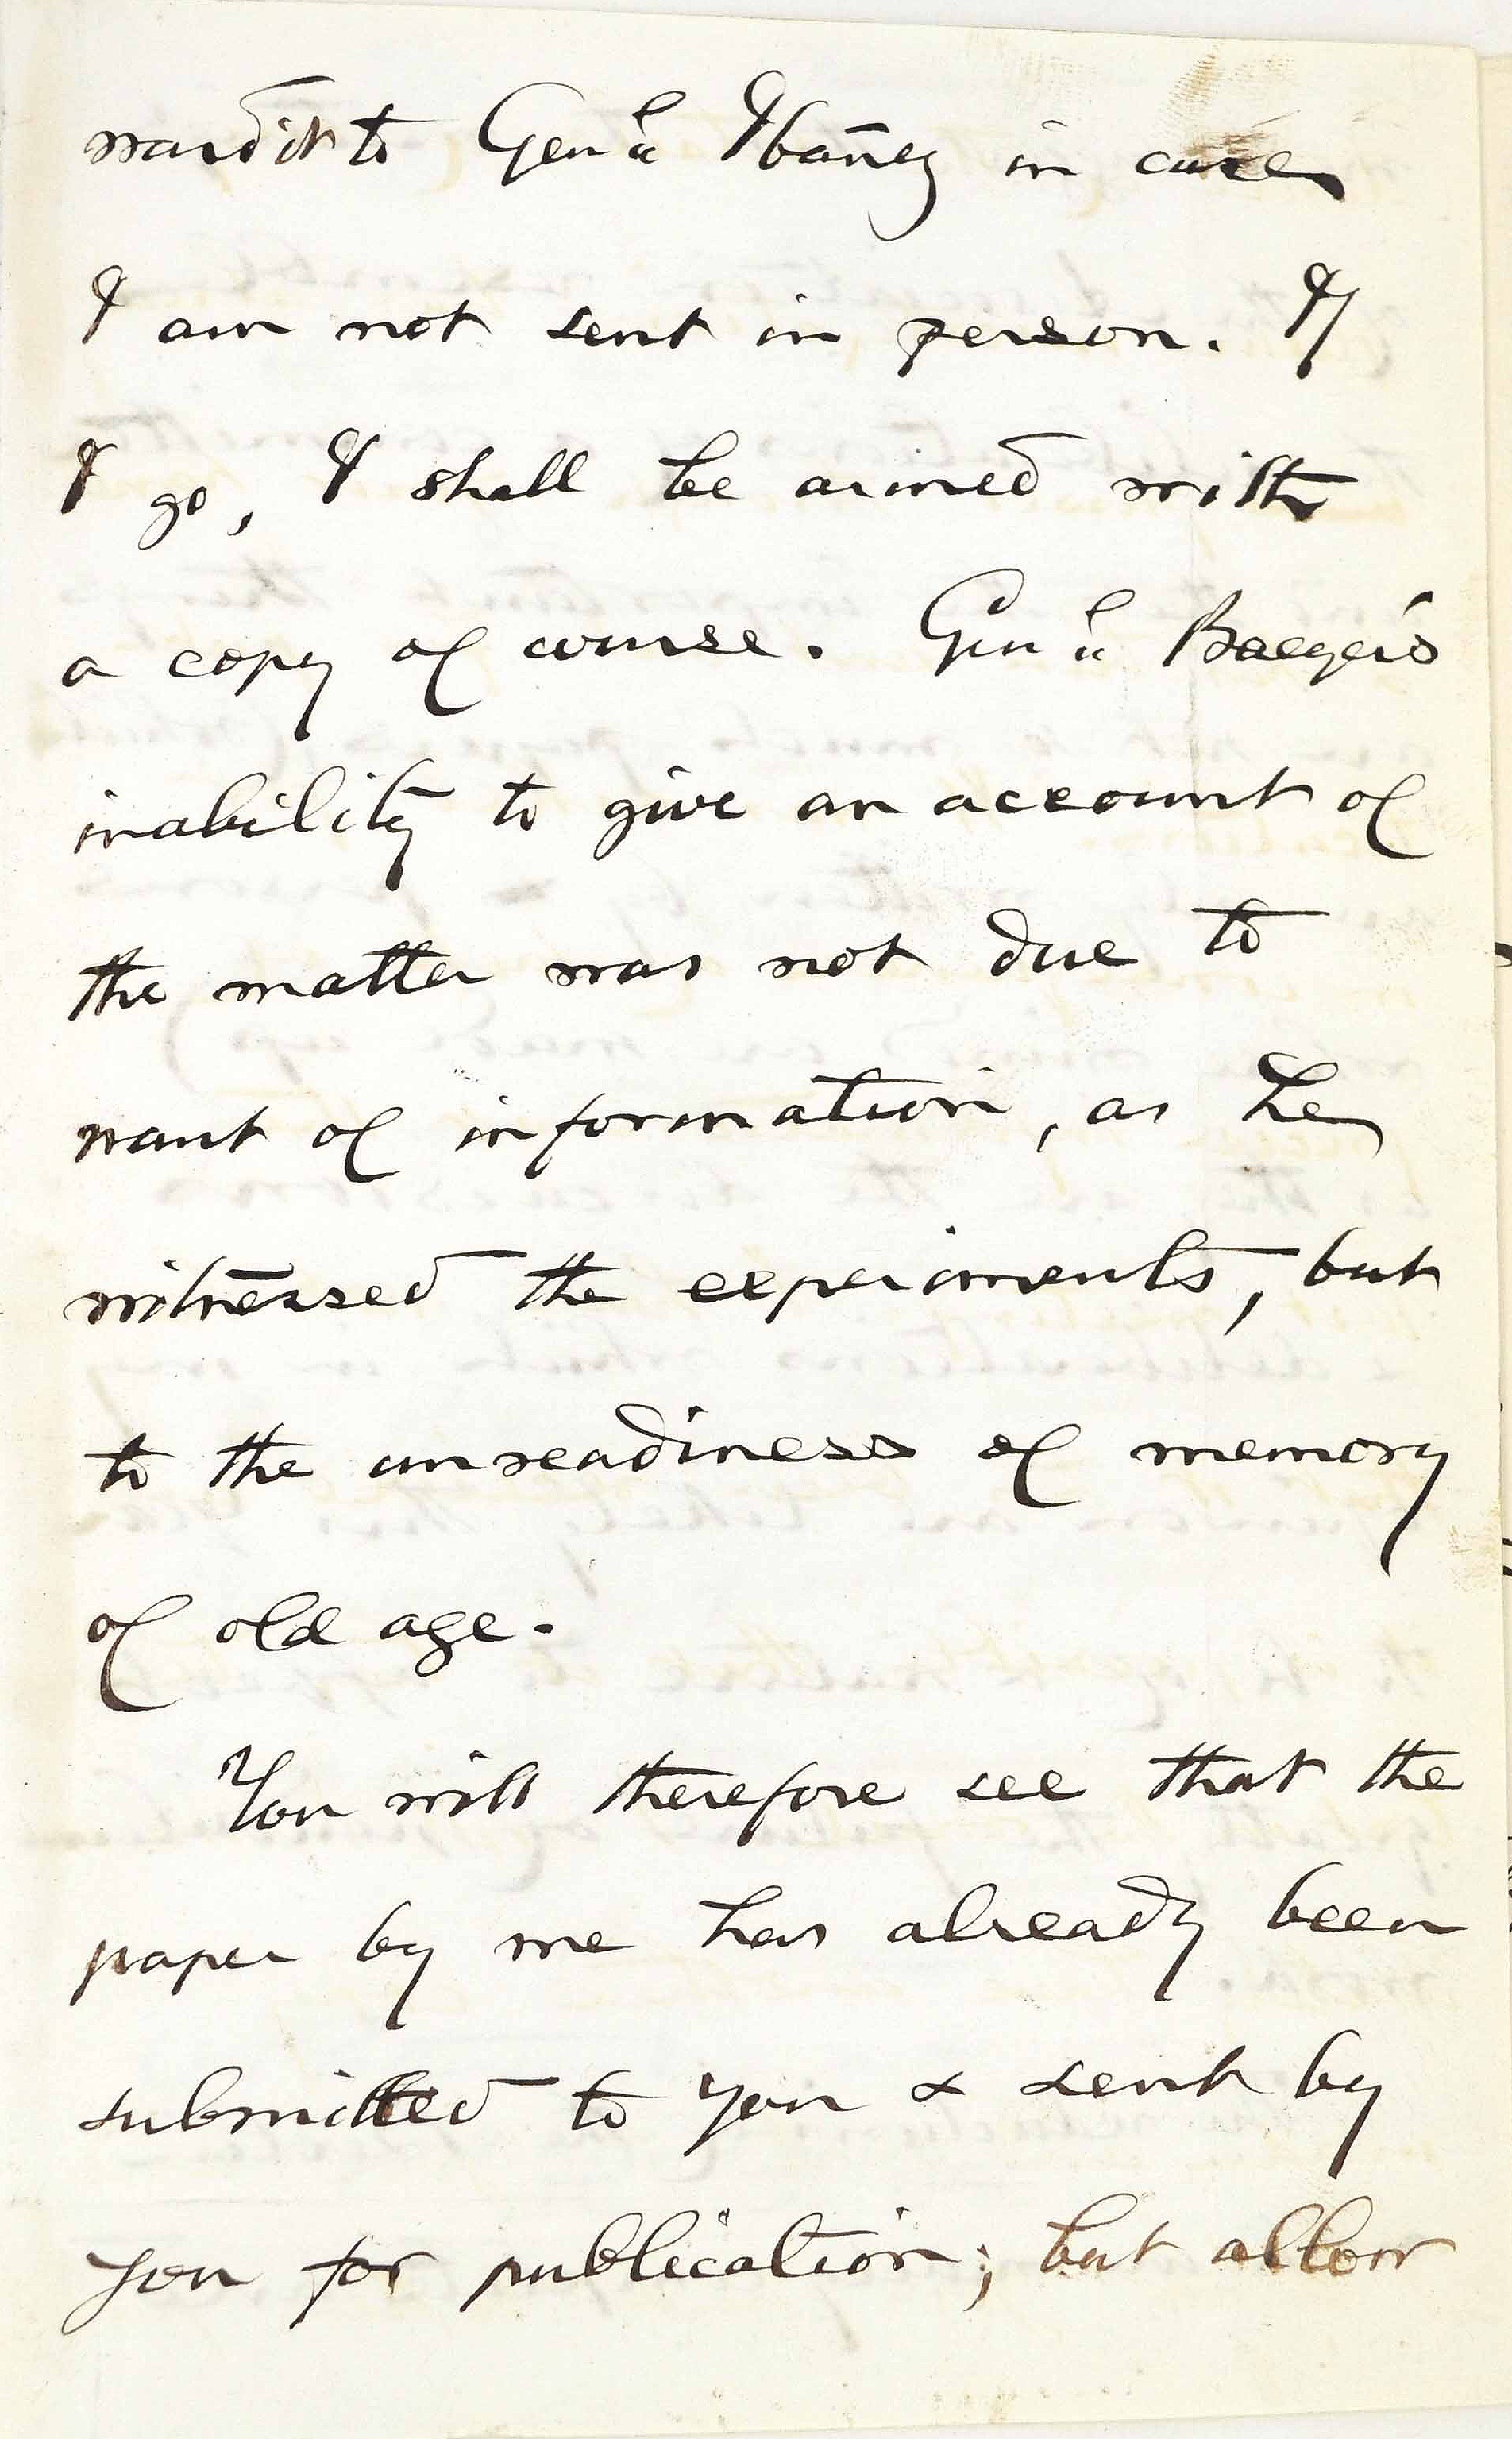 ward it to Genˡ Ibañez in case
I am not sent in person. If
I go, I shall be armed with
a copy of course. Genˡ Baeyer's
inability to give an account of
the matter was not due to
want of information, as he
witnessed the experiments, but
to the unreadiness of memory
of old age.
You will therefore see that the
paper by me has already been
submitted to you & sent by
you for publication; but allow